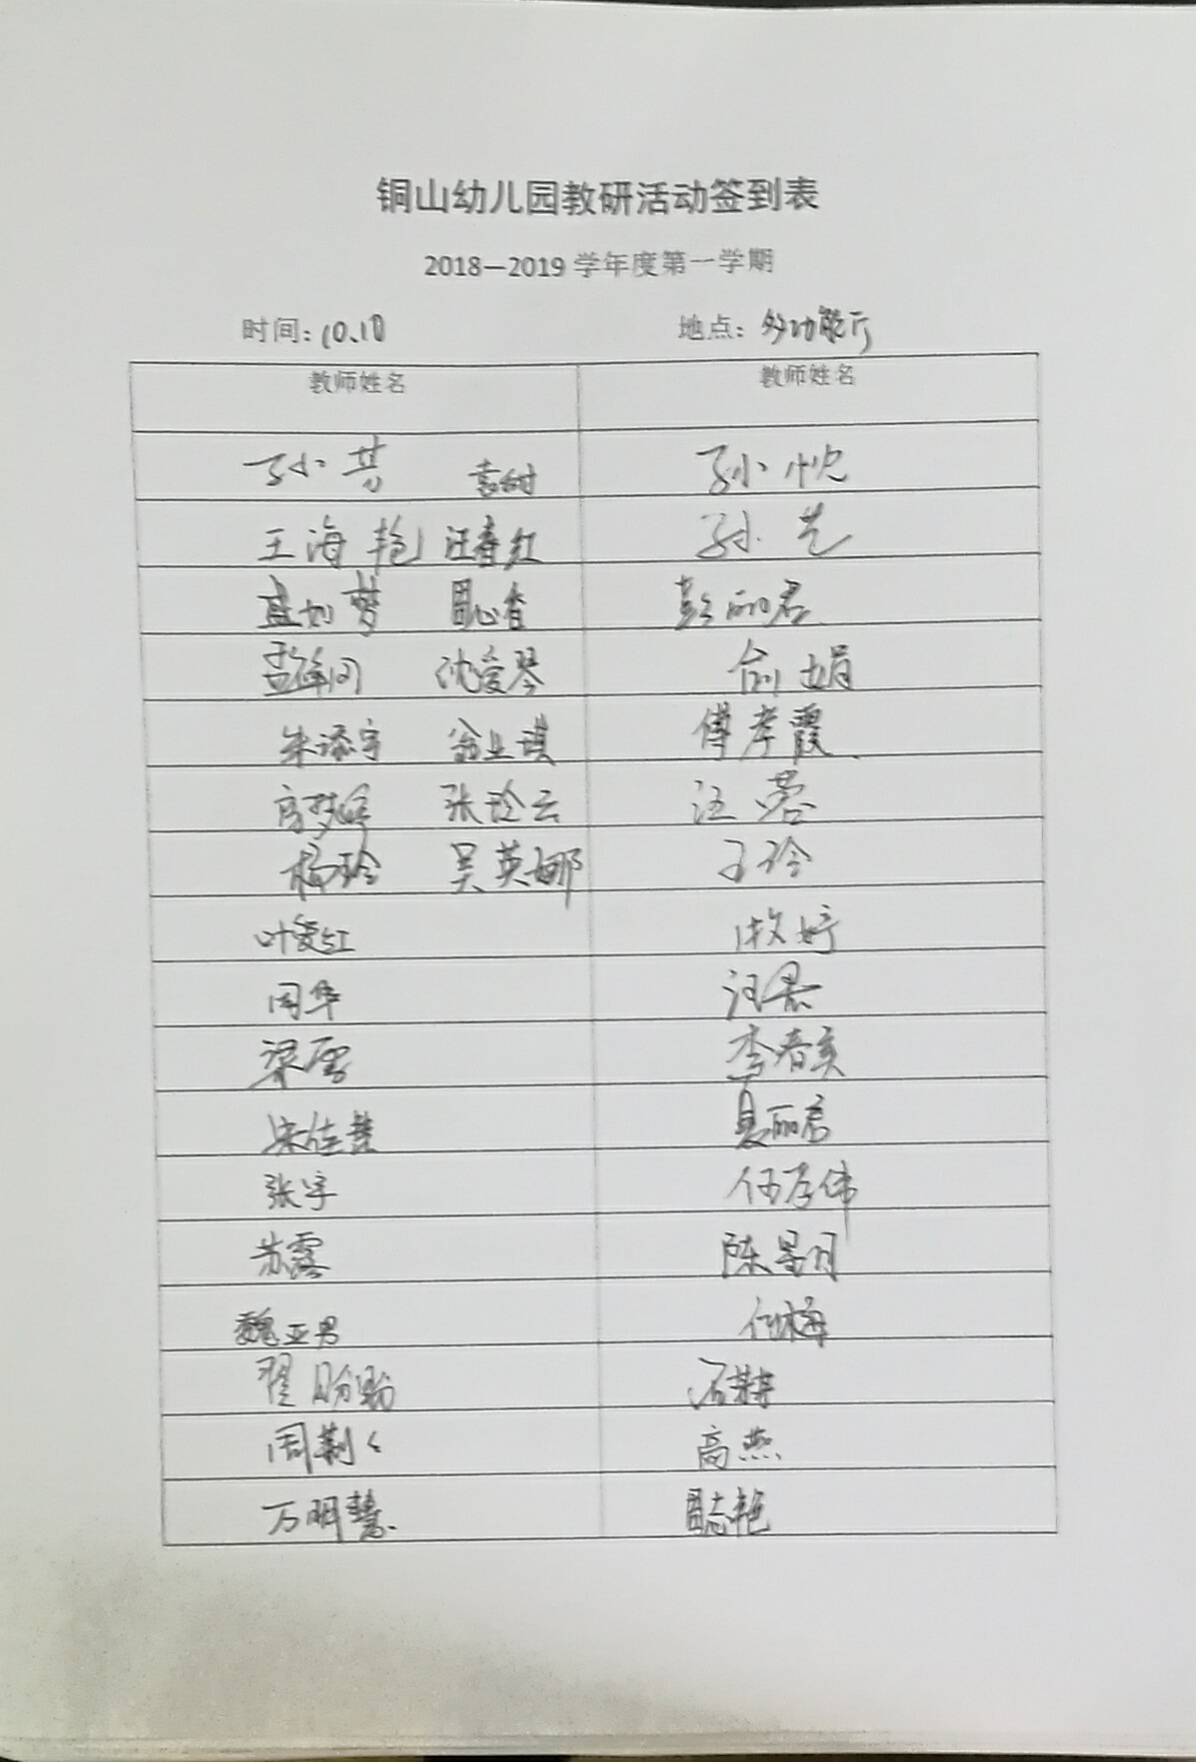 铜山幼儿园教研活动签到表
2018—2019 学年度第一学期
时间：10.18 地点：多功能厅
教师姓名 教师姓名
孙 袁树 孙忱
王海艳 汪春红 孙艺
盛如梦 周心香 彭丽君
孟 沈爱琴 俞娟
朱添宇 翁业琪 傅孝霞
房梦婷 张玲云 汪蓉
杨玲 吴英娜 王玲
叶爱红 婷
周华 汪君
梁雪 李春美
宋佳慧 夏丽君
张宇 何存伟
苏露 陈星月
魏亚男 何梅
翟盼盼 石
周荆荆 高燕
万明慧 周志艳